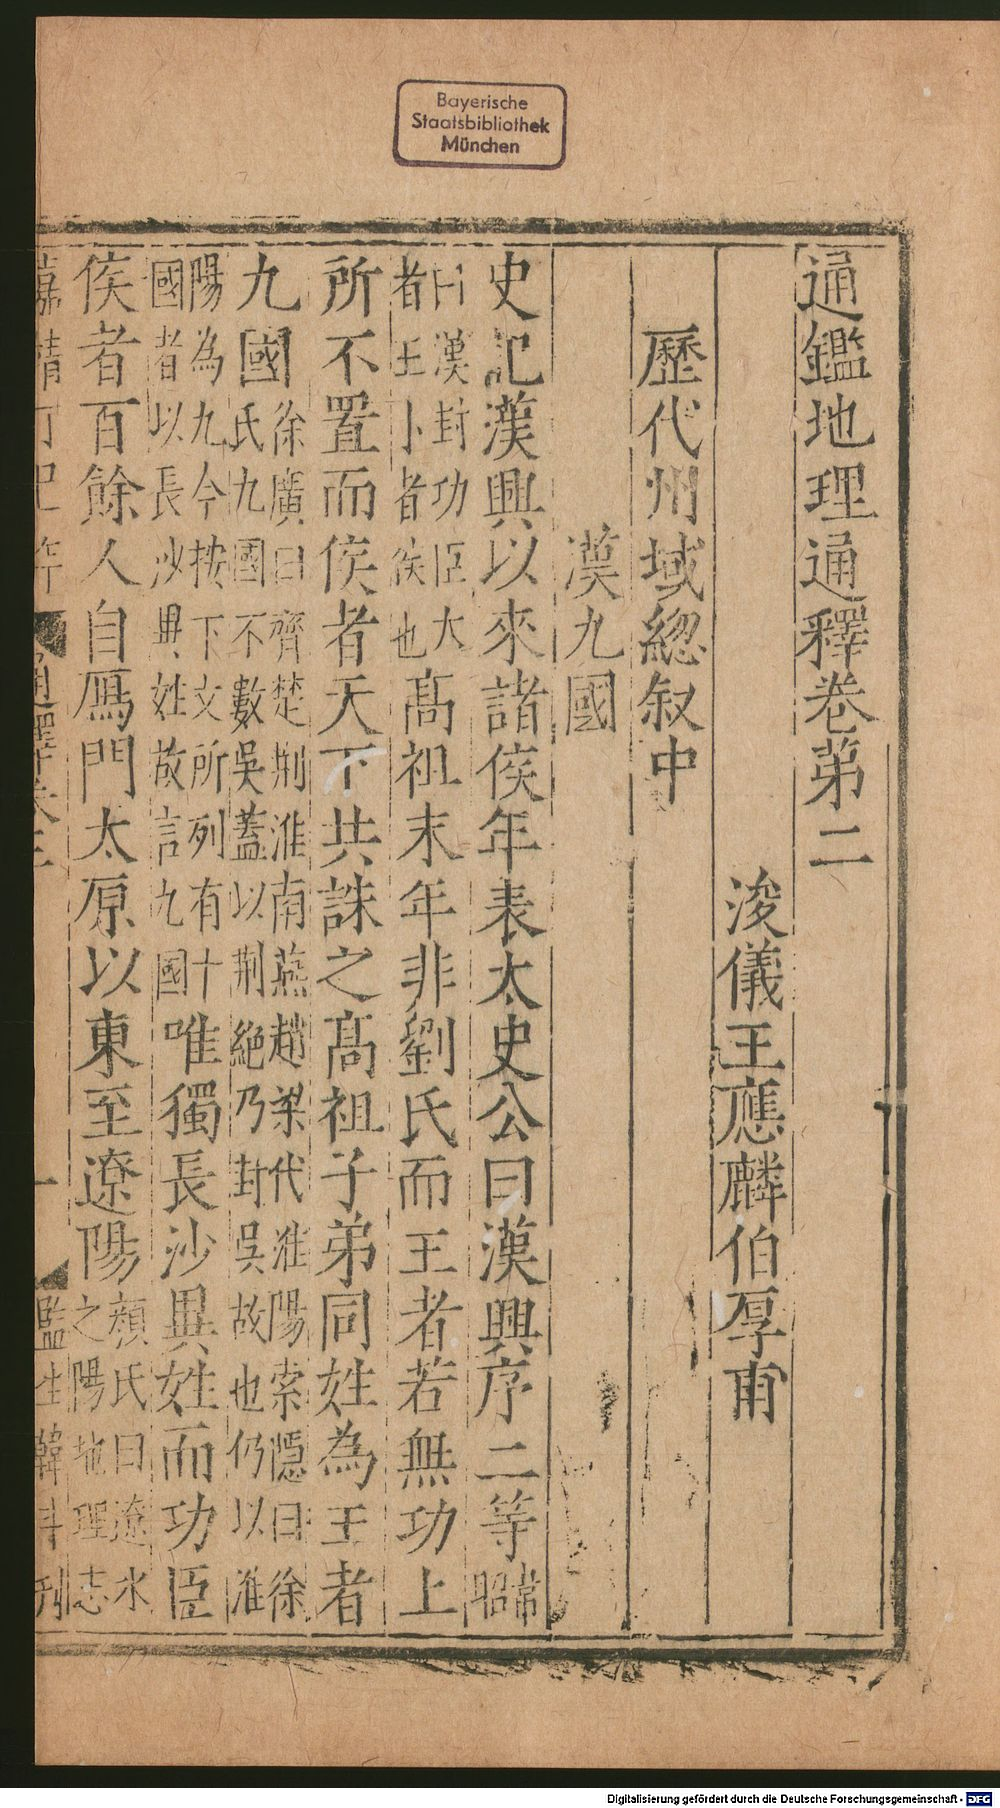 Bayerische
Staatsbibliothek
München
通鑑地理通釋卷第二
浚儀王應麟伯厚甫
歷代州域緫叙中
漢九國
史記漢興以來諸侯年表太史公曰漢興序二等韋昭
曰漢封功臣大
者王卜者侯也高祖末年非劉氏而王者若無功上
所不置而侯者天下共誅之高祖子弟同姓為王者
九國徐廣曰齊楚荆淮南燕趙梁代淮陽索隱曰徐
氏九國不數吳蓋以荆絕乃封吳故也仍以淮
陽為九今按下文所列有十
國者以長沙異姓故言九國唯獨長沙異姓而功臣
侯者百餘人自鴈門太原以東至遼陽顏氏曰遼水
之陽地理志
嘉靖丁巳年
通釋卷二
一
監生韓科刊
Digitalisierung gefördert durch die Deutsche Forschungsgemeinschaft - DFG